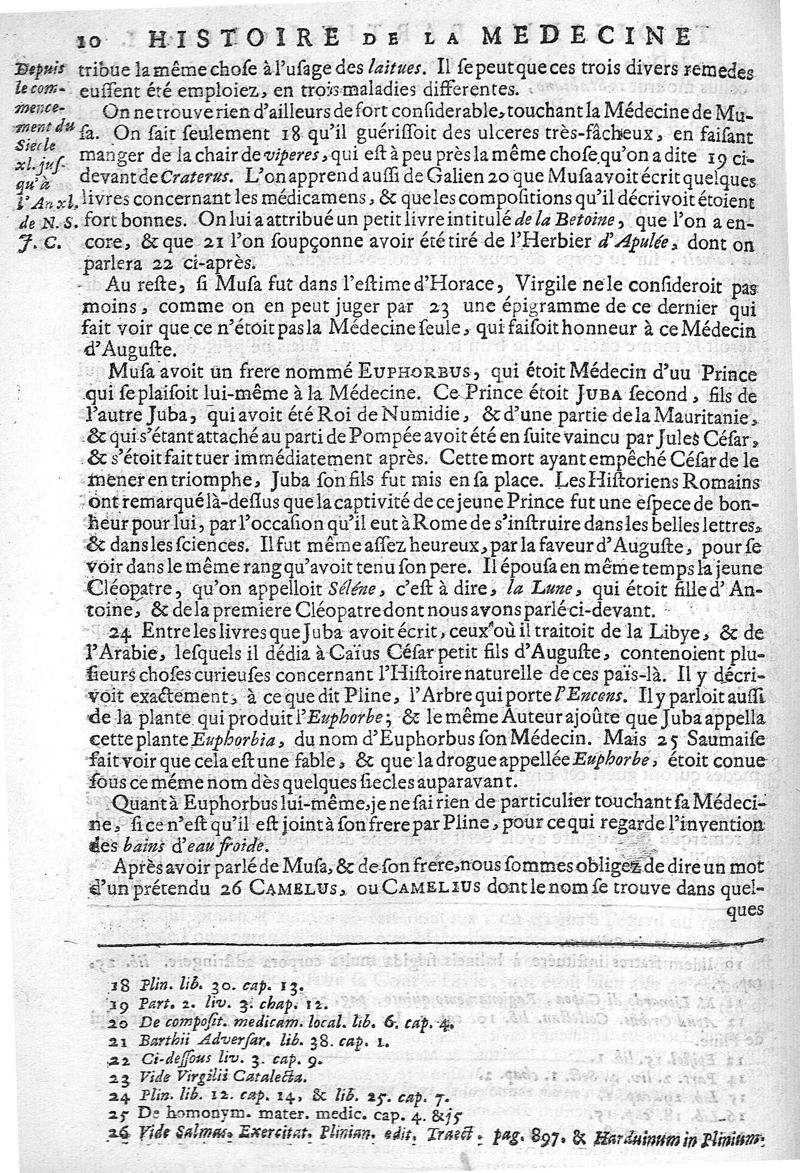 10 HISTOIRE DE LA MEDECINE
Depuis
le com-
mence-
ment du
Siecle
xl. juſ-
qu'à
l'An xl.
de N. S.
J. C.
tribue la même choſe à l'uſage des laitues. Il ſe peut que ces trois divers remedes
euſſent été emploiez, en trois maladies differentes.
On ne trouve rien d'ailleurs de fort conſiderable, touchant la Médecine de Mu-
ſa. On ſait ſeulement 18 qu'il guériſſoit des ulceres très-fâcheux, en faiſant
manger de la chair de viperes, qui eſt à peu près la même choſe qu'on a dite 19 ci-
devant de Craterus. L'on apprend auſſi de Galien 20 que Muſa avoit écrit quelques
livres concernant les médicamens, & que les compoſitions qu'il décrivoit étoient
fort bonnes. On lui a attribué un petit livre intitulé de la Betoine, que l'on a en-
core, & que 21 l'on ſoupçonne avoir été tiré de l'Herbier d'Apulée, dont on
parlera 22 ci-après.
Au reſte, ſi Muſa fut dans l'eſtime d'Horace, Virgile ne le conſideroit pas
moins, comme on en peut juger par 23 une épigramme de ce dernier qui
fait voir que ce n'étoit pas la Médecine ſeule, qui faiſoit honneur à ce Médecin
d'Auguſte.
Muſa avoit un frere nommé EUPHORBUS, qui étoit Médecin d'uu Prince
qui ſe plaiſoit lui-même à la Médecine. Ce Prince étoit JUBA ſecond, fils de
l'autre Juba, qui avoit été Roi de Numidie, & d'une partie de la Mauritanie,
& qui s'étant attaché au parti de Pompée avoit été en ſuite vaincu par Jules Céſar,
& s'étoit fait tuer immédiatement après. Cette mort ayant empêché Céſar de le
mener en triomphe, Juba ſon fils fut mis en ſa place. Les Hiſtoriens Romains
ont remarqué là-deſſus que la captivité de ce jeune Prince fut une eſpece de bon-
heur pour lui, par l'occaſion qu'il eut à Rome de s'inſtruire dans les belles lettres,
& dans les ſciences. Il fut même aſſez heureux, par la faveur d'Auguſte, pour ſe
voir dans le même rang qu'avoit tenu ſon pere. Il épouſa en même temps la jeune
Cléopatre, qu'on appelloit Séléne, c'eſt à dire, la Lune, qui étoit fille d'An-
toine, & de la premiere Cléopatre dont nous avons parlé ci-devant.
24 Entre les livres que Juba avoit écrit, ceux où il traitoit de la Libye, & de
l'Arabie, leſquels il dédia à Caïus Céſar petit fils d'Auguſte, contenoient plu-
ſieurs choſes curieuſes concernant l'Hiſtoire naturelle de ces païs-là. Il y décri-
voit exactement, à ce que dit Pline, l'Arbre qui porte l'Encens. Il y parloit auſſi
de la plante qui produit l'Euphorbe; & le même Auteur ajoûte que Juba appella
cette plante Euphorbia, du nom d'Euphorbus ſon Médecin. Mais 25 Saumaiſe
fait voir que cela eſt une fable, & que la drogue appellée Euphorbe, étoit conue
ſous ce même nom dès quelques ſiecles auparavant.
Quant à Euphorbus lui-même, je ne ſai rien de particulier touchant ſa Médeci-
ne, ſi ce n'eſt qu'il eſt joint à ſon frere par Pline, pour ce qui regarde l'invention
des bains d'eau froide.
Après avoir parlé de Muſa, & de ſon frere, nous ſommes obligez de dire un mot
d'un prétendu 26 CAMELUS, ou CAMELIUS dont le nom ſe trouve dans quel-
ques
18 Plin. lib. 30. cap. 13.
19 Part. 2. liv. 3. chap. 12.
20 De compoſit. medicam. local. lib. 6. cap. 4.
21 Barthii Adverſar. lib. 38. cap. 1.
22 Ci-deſſous liv. 3. cap. 9.
23 Vide Virgilii Catalecta.
24 Plin. lib. 12. cap. 14, & lib. 25. cap. 7.
25 De homonym. mater. medic. cap. 4. &15
26 Vide Salmaſ. Exercitat. Plinian. edit. Traect. pag. 897. & Harduinum in Plinium.